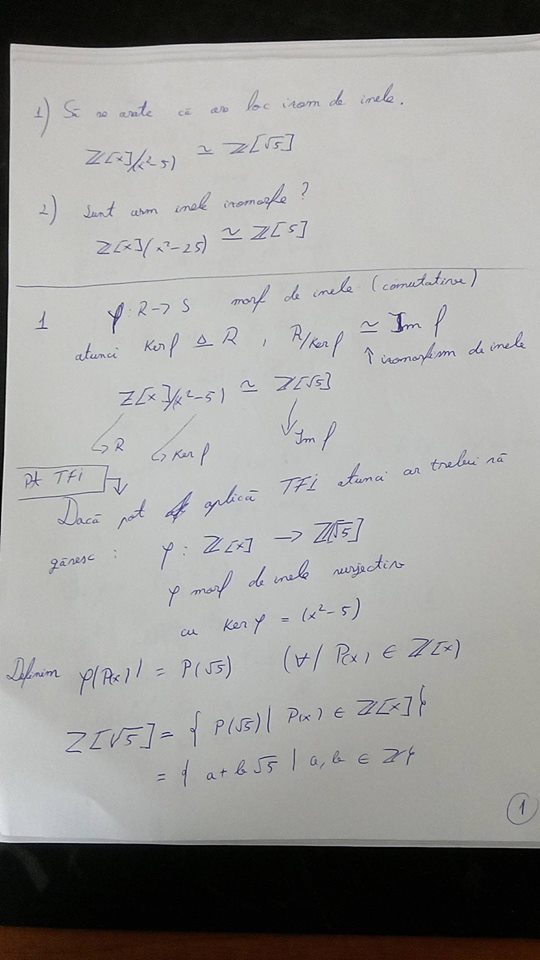 1) Să se arate că are loc izom de inele.
Z[x]/(x²-5) ≃ Z[√5]
2) Sunt urm inele izomorfe?
Z[x]/(x²-25) ≃ Z[5]
1 φ: R → S morf de inele (comutative)
atunci Ker φ Δ R, R/Ker φ ≃ Im φ
↑ izomorfism de inele
Z[x]/(x²-5) ≃ Z[√5]
R Ker φ Im φ
Pt TFI
Dacă pot aplică TFI atunci ar trebui să
găsesc: φ: Z[x] → Z[√5]
φ morf de inele surjectiv
cu Ker φ = (x²-5)
Definim φ(P(x)) = P(√5) (∀) P(x) ∈ Z[x]
Z[√5] = { P(√5) | P(x) ∈ Z[x] }
= { a+b√5 | a, b ∈ Z }
1